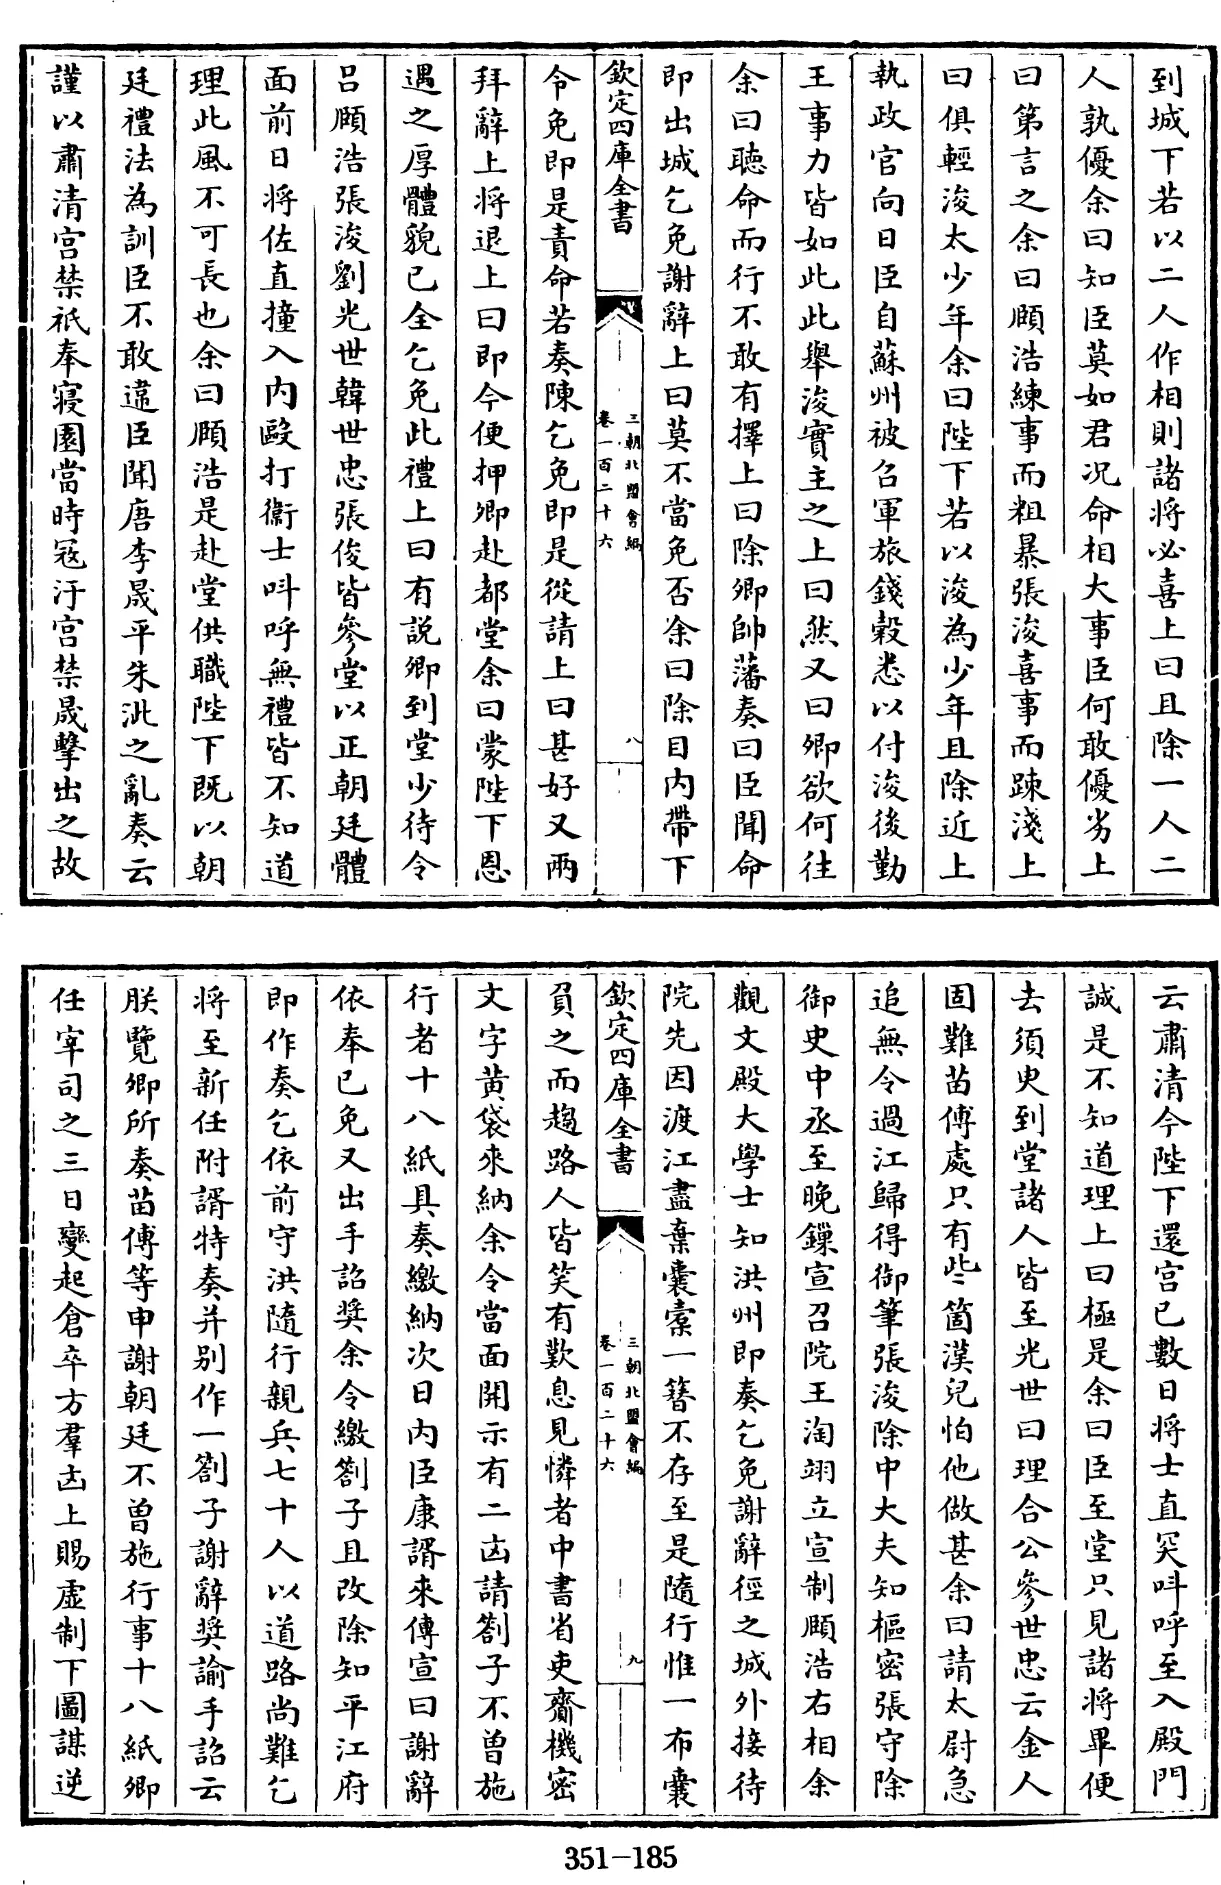 到城下若以二人作相則諸將必喜上曰且除一人二
人孰優余曰知臣莫如君况命相大事臣何敢優劣上
曰第言之余曰頤浩練事而粗暴張浚喜事而踈淺上
曰俱輕浚太少年余曰陛下若以浚為少年且除近上
執政官向日臣自蘇州被召軍旅錢穀悉以付浚後勤
王事力皆如此此舉浚實主之上曰然又曰卿欲何往
余曰聽命而行不敢有擇上曰除卿帥藩奏曰臣聞命
即出城乞免謝辭上曰莫不當免否余曰除目内帶下
欽定四庫全書
三朝北盟會編
卷一百二十六
八
令免即是責命若奏陳乞免即是從請上曰甚好又兩
拜辭上將退上曰即今便押卿赴都堂余曰蒙陛下恩
遇之厚體貌已全乞免此禮上曰有説卿到堂少待令
吕頤浩張浚劉光世韓世忠張俊皆參堂以正朝廷體
面前日將佐直撞入内毆打衞士呌呼無禮皆不知道
理此風不可長也余曰頤浩是赴堂供職陛下既以朝
廷禮法為訓臣不敢違臣聞唐李晟平朱泚之亂奏云
謹以肅清宫禁祇奉寢園當時冦汙宫禁晟擊出之故
云肅清今陛下還宫已數日將士直突呌呼至入殿門
誠是不知道理上曰極是余曰臣至堂只見諸將畢便
去須臾到堂諸人皆至光世曰理合公參世忠云金人
固難苗傅處只有些箇漢兒怕他做甚余曰請太尉急
追無令過江歸得御筆張浚除中大夫知樞密張守除
御史中丞至晚鏁宣召院王淘翊立宣制頤浩右相余
觀文殿大學士知洪州即奏乞免謝辭徑之城外接待
院先因渡江盡棄囊橐一簪不存至是隨行惟一布囊
欽定四庫全書
三朝北盟會編
卷一百二十六
九
負之而趨路人皆笑有歎息見憐者中書省吏齎機密
文字黄袋來納余令當面開示有二凶請劄子不曾施
行者十八紙具奏繳納次日内臣康諝來傳宣曰謝辭
依奉已免又出手詔奬余令繳劄子且改除知平江府
即作奏乞依前守洪隨行親兵七十人以道路尚難乞
將至新任附諝特奏并别作一劄子謝辭奬諭手詔云
朕覽卿所奏苗傅等申謝朝廷不曾施行事十八紙卿
任宰司之三日變起倉卒方羣凶上賜虚制下圖謀逆
351-185